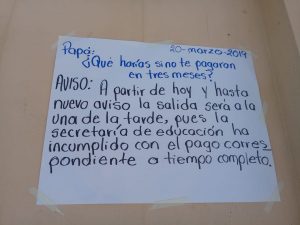 Papá: 20-marzo-2019
¿Qué harías si no te pagaran
en tres meses?
AVISO: A partir de hoy y hasta
nuevo aviso la salida será a la
una de la tarde, pues la
secretaría de educación ha
incumplido con el pago corres
pondiente a tiempo completo.